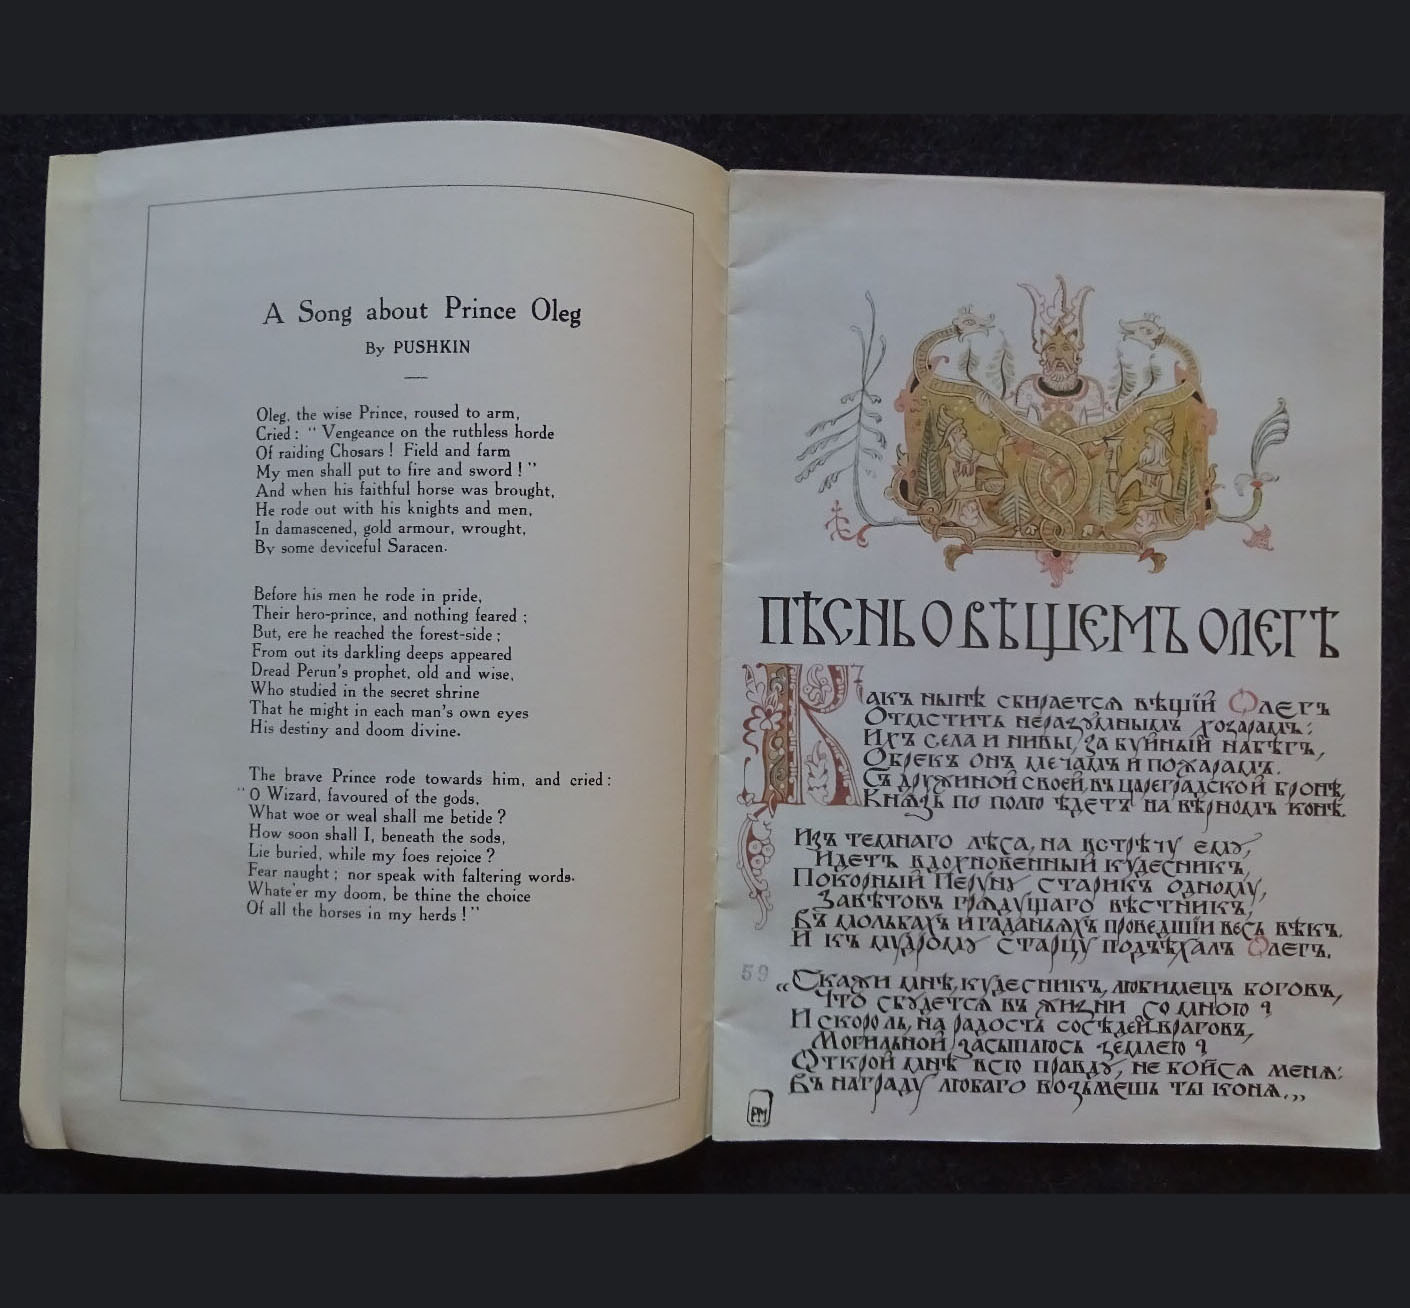 A Song about Prince Oleg
By PUSHKIN
Oleg, the wise Prince, roused to arm,
Cried: “ Vengeance on the ruthless horde
Of raiding Chosars ! Field and farm
My men shall put to fire and sword ! ”
And when his faithful horse was brought,
He rode out with his knights and men,
In damascened, gold armour, wrought,
By some deviceful Saracen.
Before his men he rode in pride,
Their hero-prince, and nothing feared ;
But, ere he reached the forest-side ;
From out its darkling deeps appeared
Dread Perun's prophet, old and wise,
Who studied in the secret shrine
That he might in each man's own eyes
His destiny and doom divine.
The brave Prince rode towards him, and cried :
“ O Wizard, favoured of the gods,
What woe or weal shall me betide ?
How soon shall I, beneath the sods,
Lie buried, while my foes rejoice ?
Fear naught ; nor speak with faltering words.
Whate'er my doom, be thine the choice
Of all the horses in my herds ! ”
ПѢСНЬ О ВѢЩЕМЪ ОЛЕГѢ
Какъ нынѣ сбирается вѣщій Олегъ
Отмстить неразумнымъ хозарамъ:
Ихъ села и нивы, за буйный набѣгъ,
Обрекъ онъ мечамъ и пожарамъ.
Съ дружиной своей, въ цареградской бронѣ,
Князь по полю ѣдетъ на вѣрномъ конѣ.
Изъ темнаго лѣса, на встрѣчу ему,
Идетъ вдохновенный кудесникъ,
Покорный Перуну старикъ одному,
Завѣтовъ грядущаго вѣстникъ,
Въ мольбахъ и гаданьяхъ проведшій весь вѣкъ.
И къ мудрому старцу подъѣхалъ Олегъ.
59
„Скажи мнѣ, кудесникъ, любимецъ боговъ,
Что сбудется въ жизни со мною?
И скоро ль, на радость сосѣдей-враговъ,
Могильной засыплюсь землею?
Открой мнѣ всю правду, не бойся меня:
Въ награду любаго возьмешь ты коня.„
РМ